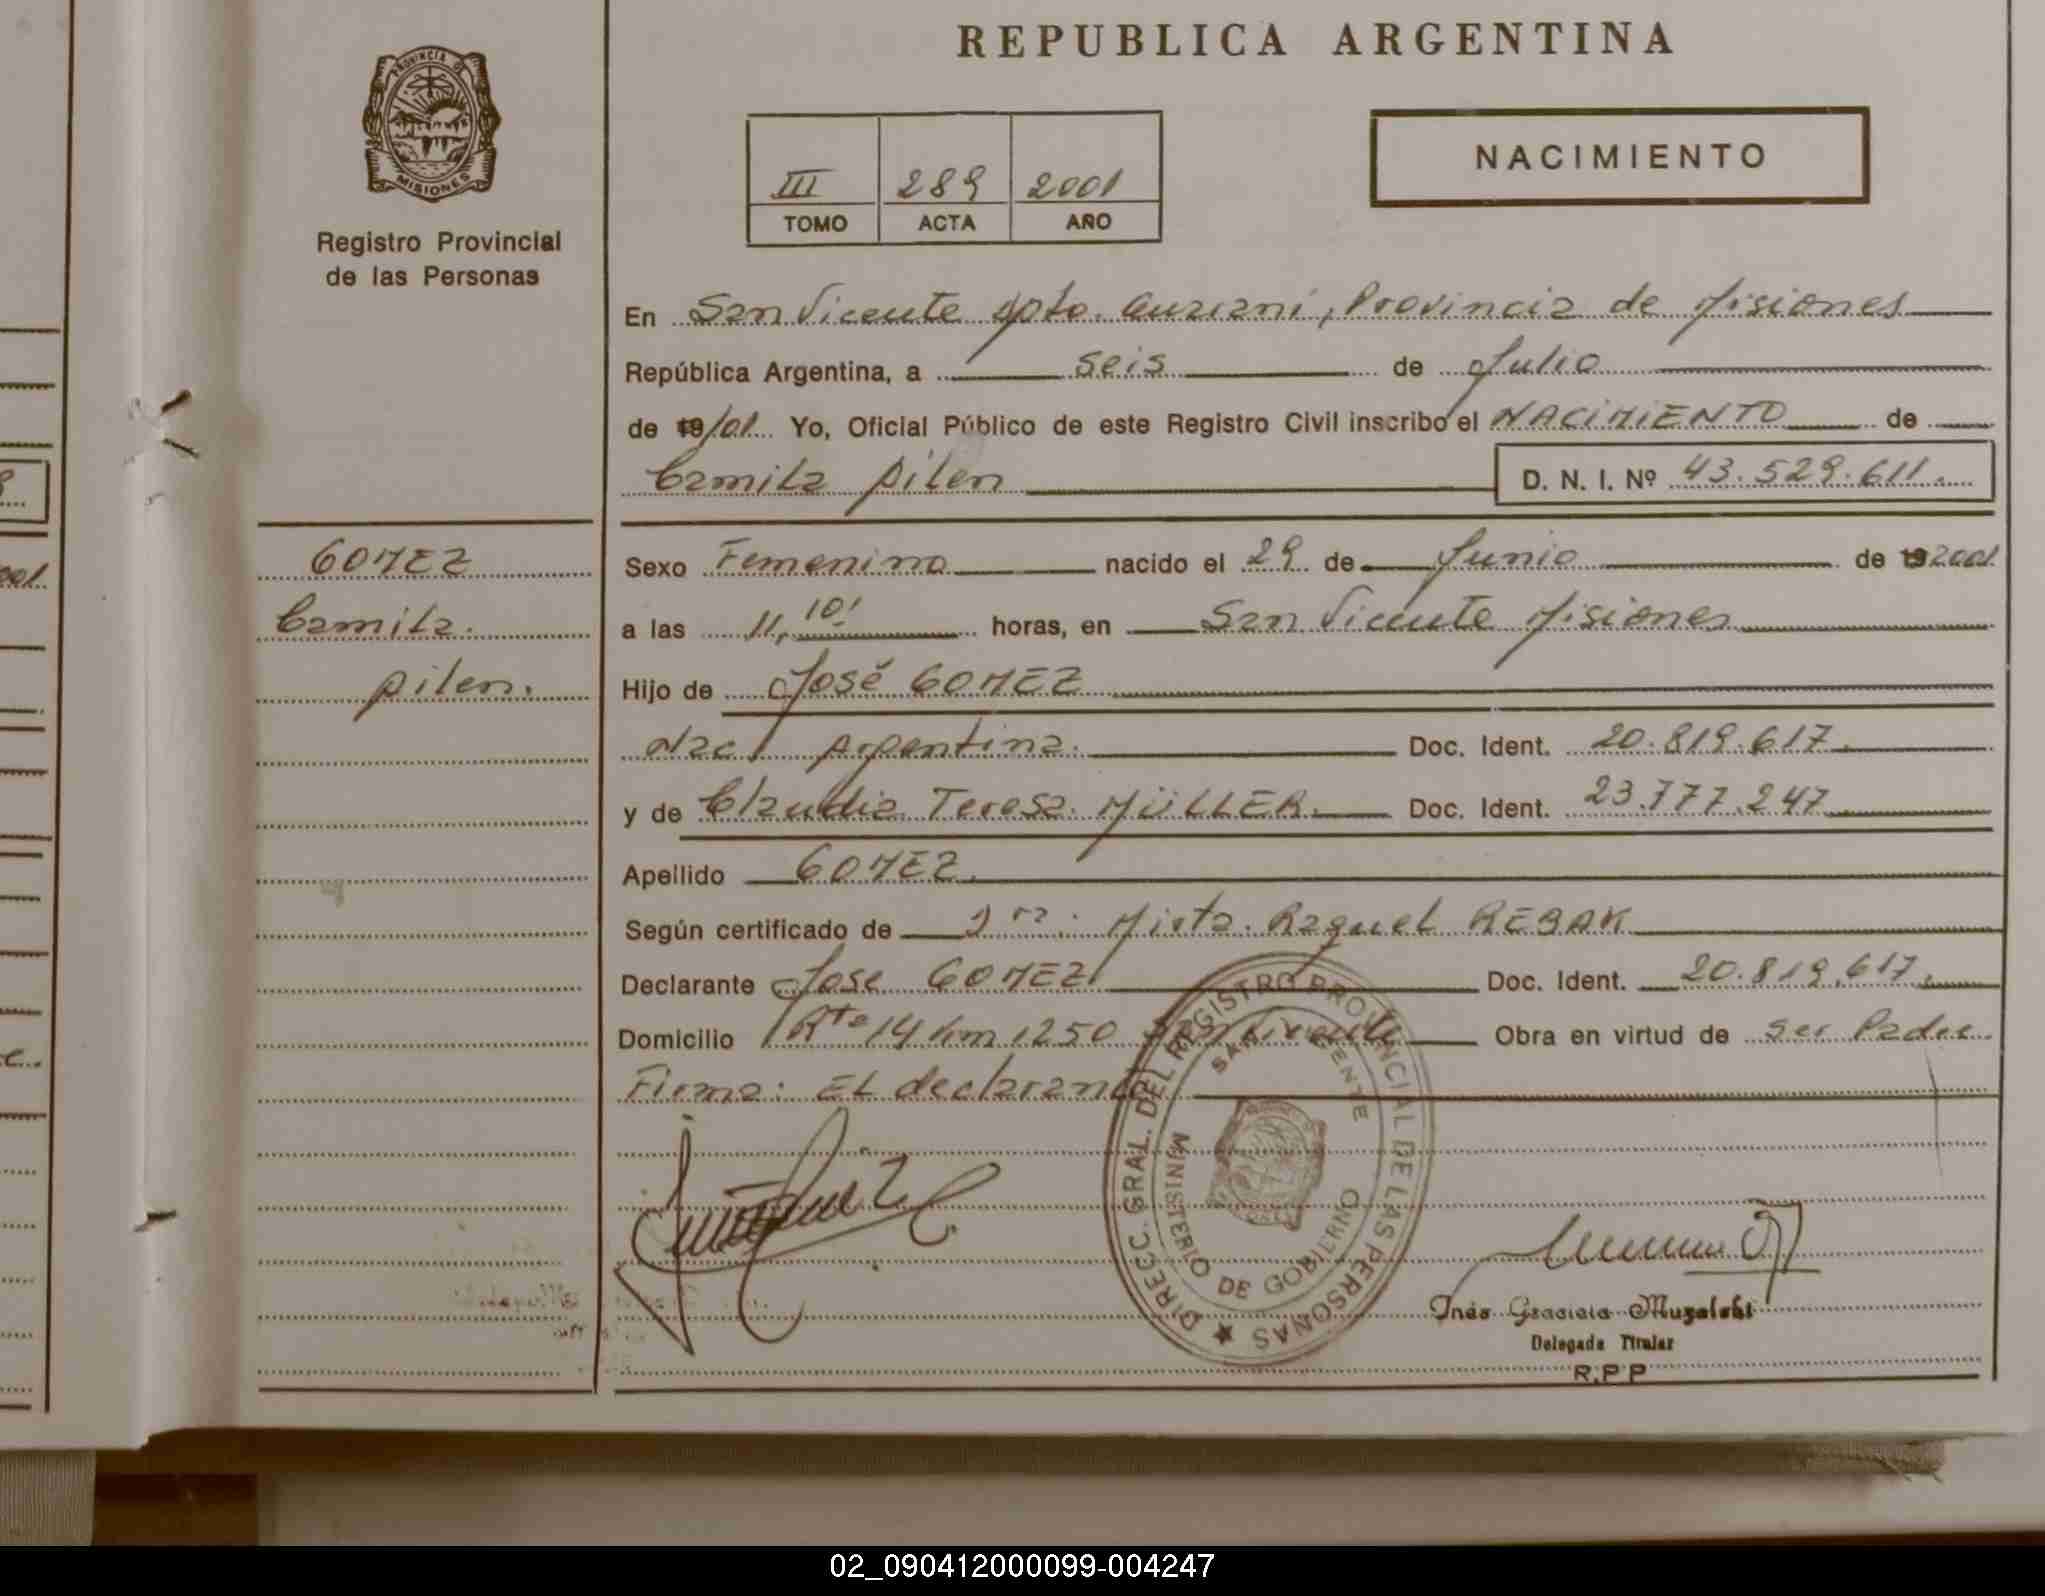 REPUBLICA ARGENTINA
PROVINCIA DE MISIONES
Registro Provincial
de las Personas
III 289 2001
TOMO ACTA AÑO
NACIMIENTO
En San Vicente Dpto. Guarani, Provincia de Misiones
República Argentina, a seis de Julio
de 19/01 Yo, Oficial Público de este Registro Civil inscribo el NACIMIENTO de
Camila Pilen
D. N. I. Nº 43.529.611.
GOMEZ
Camila.
Pilen.
Sexo Femenino nacido el 29 de Junio de 19 2001
a las 11, 10' horas, en San Vicente Misiones
Hijo de José GOMEZ
Nac. Argentina. Doc. Ident. 20.819.617.
y de Claudia Teresa MÜLLER. Doc. Ident. 23.777.247
Apellido GOMEZ.
Según certificado de Dra. Mirta Raquel REBAK
Declarante José GOMEZ Doc. Ident. 20.819.617.
Domicilio Rta 14 km 1250 San Vicente Obra en virtud de ser Padre.
Firma: El declarante
DIRECC. GRAL. DEL REGISTRO PROVINCIAL DE LAS PERSONAS
SAN VICENTE
MINISTERIO DE GOBIERNO
Inés Graciela Muzalski
Delegada Titular
R.P.P
02_090412000099-004247